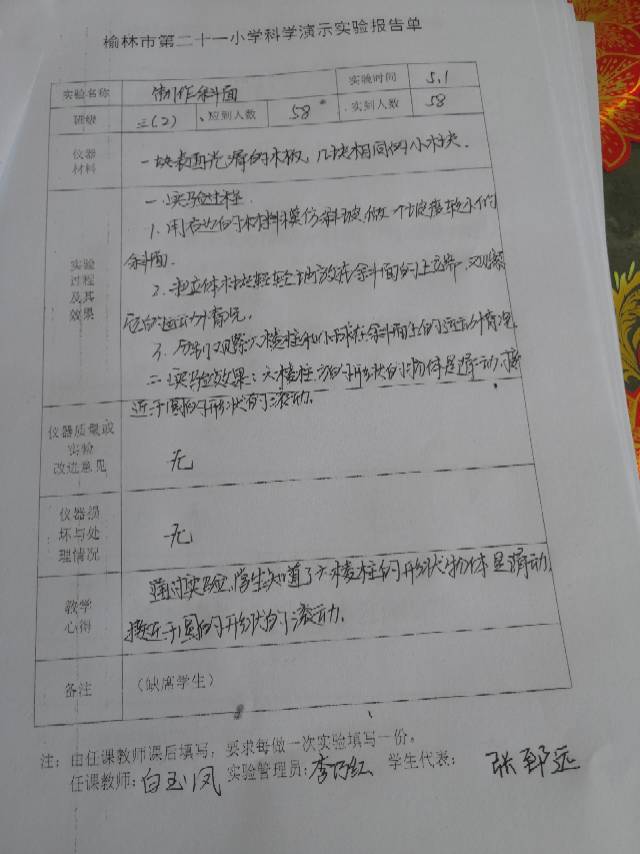 榆林市第二十一小学科学演示实验报告单
实验名称 制作斜面 实验时间 5.1
班级 三(2) 应到人数 58 实到人数 58
仪器材料 一块表面光滑的木板,几块相同的小木块.
实验过程及其效果
一.实验过程
1.用右边的材料模仿斜坡,做一个坡度较小的
斜面.
2.把立体木块轻轻地放在斜面的上端,观察
它的运动情况.
3.分别观察六棱柱和小球在斜面上的运动情况
二.实验效果:六棱柱、方的形状的物体是滑动.接
近于圆的形状的滚动.
仪器质量或实验改进意见 无
仪器损坏与处理情况 无
教学心得 通过实验,学生知道了六棱柱的形状物体是滑动,
接近于圆的形状的滚动.
备注 (缺席学生)
注:由任课教师课后填写,要求每做一次实验填写一份。
任课教师:白玉凤 实验管理员:李巧红 学生代表: 张郅远